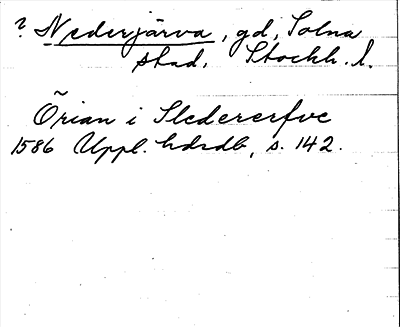 ? Nederjärva, gd, Solna
stad, Stockh. l.
Örian i Sledererfve
1586 Uppl. hdrdb, s. 142.